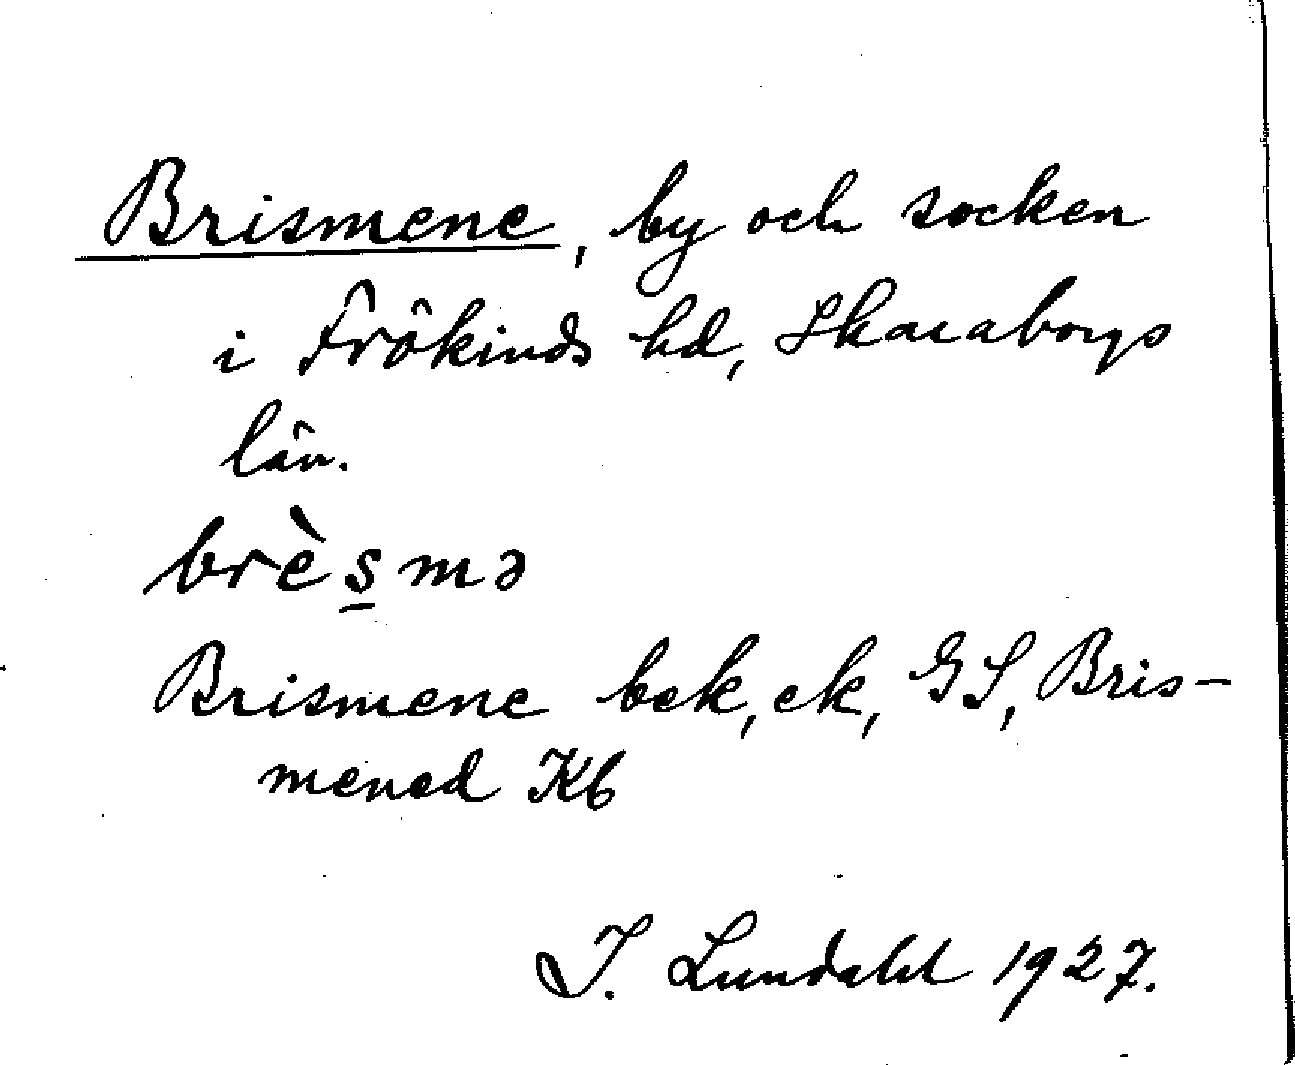 Brismene, by och socken
i Frökinds hd, Skaraborgs
län.
brès̲mə
Brismene bek, ek, GS, Bris-
mened Kb
I. Lundahl 1927.